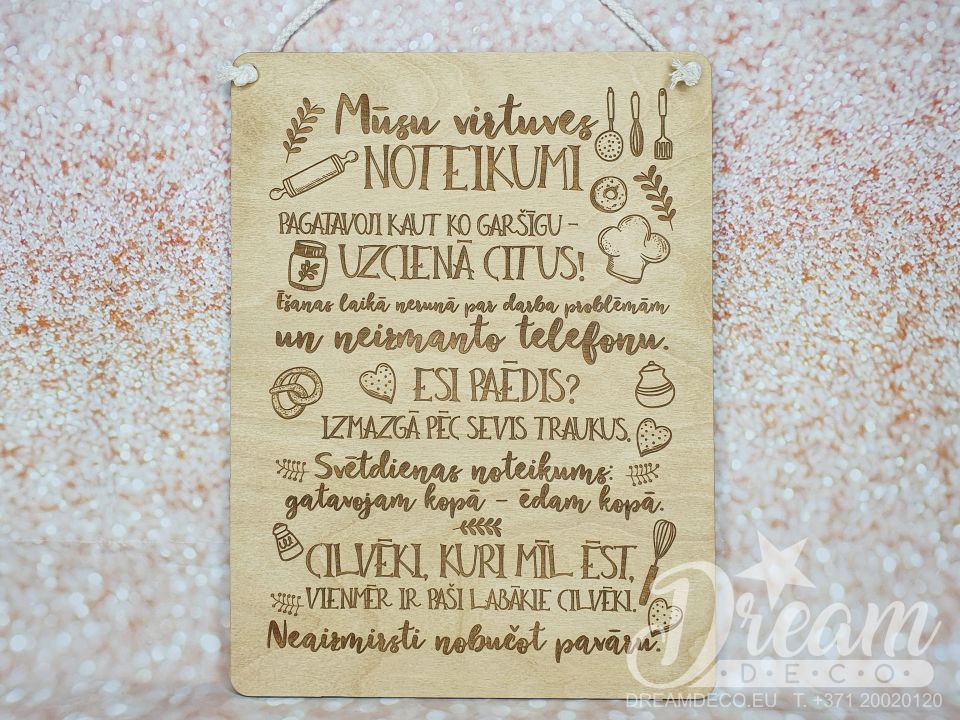 Mūsu virtuves
NOTEIKUMI
PAGATAVOJI KAUT KO GARŠĪGU -
UZCIENĀ CITUS!
Ēšanas laikā nerunā par darba problēmām
un neizmanto telefonu.
ESI PAĒDIS?
IZMAZGĀ PĒC SEVIS TRAUKUS.
Svētdienas noteikums:
gatavojam kopā - ēdam kopā.
CILVĒKI, KURI MĪL ĒST,
VIENMĒR IR PAŠI LABĀKIE CILVĒKI.
Neaizmirsti nobučot pavāru.
Dream
DECO
DREAMDECO.EU T. +371 20020120